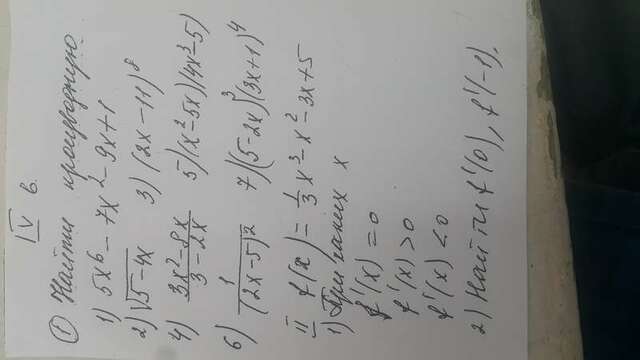 IV в.
① Найти производную.
1) 5x⁶ – 7x² – 9x + 1
2) √(5-4x) 3) (2x – 11)⁸
4) (3x² – 8x)/(3 – 2x) 5) (x² – 5x)(4x³ – 5)
6) 1/(2x – 5)² 7) (5 – 2x)³(3x + 1)⁴
II f(x) = 1/3 x³ – x² – 3x + 5
1) При каких x
f'(x) = 0
f'(x) > 0
f'(x) < 0
2) Найти f'(0), f'(-1).